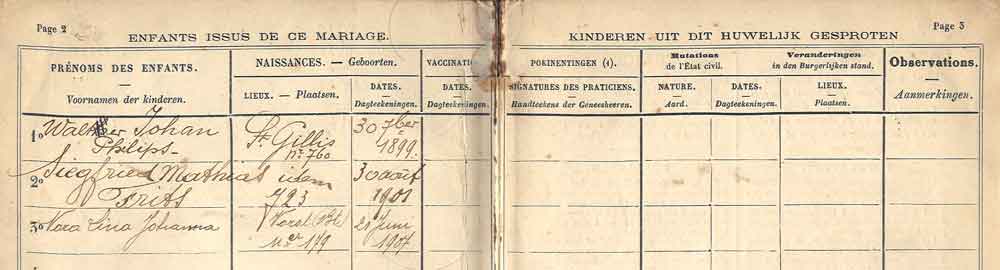 Page 2
Page 3
ENFANTS ISSUS DE CE MARIAGE.
KINDEREN UIT DIT HUWELIJK GESPROTEN
PRÉNOMS DES ENFANTS.
—
Voornamen der kinderen.
NAISSANCES. — Geboorten.
LIEUX. — Plaatsen.
DATES.
—
Dagteekeningen.
VACCINATIO
DATES.
—
Dagteekeningen.
POKINENTINGEN (1).
SIGNATURES DES PRATICIENS.
Handteekens der Geneesheeren.
Mutations
de l'État civil.
NATURE.
—
Aard.
DATES.
—
Dagteekeningen.
Veranderingen
in den Burgerlijken stand.
LIEUX.
—
Plaatsen.
Observations.
—
Aanmerkingen.
1o Walther Johan
Philips
St. Gillis
no 760
30 7ber
1899.
2o Siegfried Mathias
Frits
idem
723
30 août
1901
3o Nora Lina Johanna
no 179
20 Juni
1907